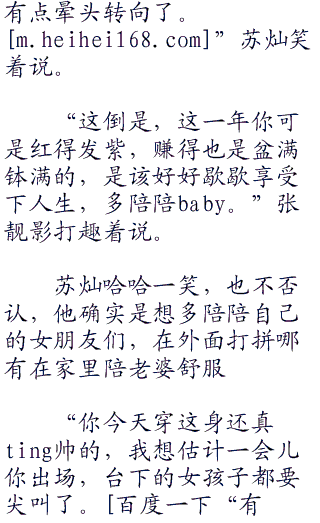 有点晕头转向了。
[m.heihei168.com]”苏灿笑
着说。
“这倒是，这一年你可
是红得发紫，赚得也是盆满
钵满的，是该好好歇歇享受
下人生，多陪陪baby。”张
靓影打趣着说。
苏灿哈哈一笑，也不否
认，他确实是想多陪陪自己
的女朋友们，在外面打拼哪
有在家里陪老婆舒服
“你今天穿这身还真
ting帅的，我想估计一会儿
你出场，台下的女孩子都要
尖叫了。[百度一下“有